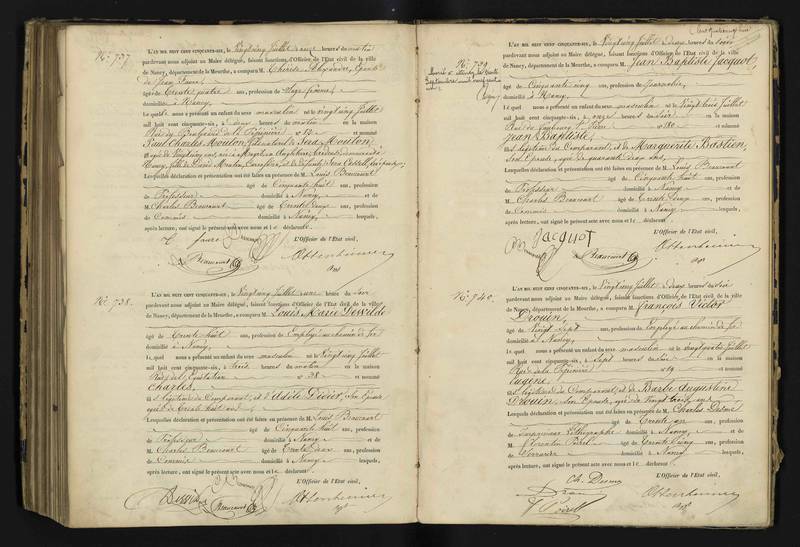 No. 737.
L'AN MIL HUIT CENT CINQUANTE-SIX, le Vingtcinq Juillet à onze heures du matin
pardevant nous adjoint au Maire délégué, faisant fonctions d'Officier de l'Etat civil de la ville
de Nancy, département de la Meurthe, a comparu M.
de Jean Faure
âgée de Trente quatre ans, profession de Sage femme,
domiciliée à Nancy,
Laquelle nous a présenté un enfant du sexe masculin né le Vingtcinq Juillet
mil huit cent cinquante-six, à deux heures du matin en la maison
Rue de la Pépinière n° et nommé
Paul Charles Mouton, fils naturel de Sera Mouton
Lesquelles déclaration et présentation ont été faites en présence de M. Louis Beaucourt
âgé de Cinquante huit ans, profession
de Professeur domicilié à Nancy, et de
M. Charles Beaucourt âgé de Trente deux ans, profession
de Commis domicilié à Nancy lesquels,
après lecture, ont signé le présent acte avec nous et la déclarante.
Faure
L'Officier de l'Etat civil,
Beaucourt
Ottenheimer
No. 738.
L'AN MIL HUIT CENT CINQUANTE-SIX, le Vingtcinq Juillet à une heure du soir
pardevant nous adjoint au Maire délégué, faisant fonctions d'Officier de l'Etat civil de la ville
de Nancy, département de la Meurthe, a comparu M. Louis Marie
âgé de Trente huit ans, profession de Employé au chemin de fer
domicilié à Nancy,
Lequel nous a présenté un enfant du sexe masculin né le Vingtcinq Juillet
mil huit cent cinquante-six, à trois heures du matin en la maison
Rue de l'Equitation n° 38 et nommé
Charles,
fils légitime du Comparant, et d'Adèle Didier, son Epouse
âgée de Trente huit ans
Lesquelles déclaration et présentation ont été faites en présence de M. Louis Beaucourt
âgé de Cinquante huit ans, profession
de Professeur domicilié à Nancy et de
M. Charles Beaucourt âgé de Trente deux ans, profession
de Commis domicilié à Nancy lesquels,
après lecture, ont signé le présent acte avec nous et le déclarant.
L'Officier de l'Etat civil,
Beaucourt
Ottenheimer
No. 739
L'AN MIL HUIT CENT CINQUANTE-SIX, le Vingtcinq Juillet à deux heures du soir
pardevant nous adjoint au Maire délégué, faisant fonctions d'Officier de l'Etat civil de la ville
de Nancy, département de la Meurthe, a comparu M. Jean Baptiste Jacquot,
âgé de Cinquante cinq ans, profession de Journalier,
domicilié à Nancy,
Lequel nous a présenté un enfant du sexe masculin né le Vingt trois Juillet
mil huit cent cinquante-six, à onze heures du soir en la maison
Rue du faubourg St. Pierre n° 180 et nommé
Jean Baptiste,
fils légitime du Comparant, et de Marguerite Bastien,
son Epouse, âgée de quarante deux ans,
Lesquelles déclaration et présentation ont été faites en présence de M. Louis Beaucourt
âgé de Cinquante huit ans, profession
de Professeur domicilié à Nancy et de
M. Charles Beaucourt âgé de Trente deux ans, profession
de Commis domicilié à Nancy lesquels,
après lecture, ont signé le présent acte avec nous et le déclarant.
Jacquot
L'Officier de l'Etat civil,
Beaucourt
Ottenheimer
No. 740.
L'AN MIL HUIT CENT CINQUANTE-SIX, le Vingtcinq Juillet à deux heures du soir
pardevant nous adjoint au Maire délégué, faisant fonctions d'Officier de l'Etat civil de la ville
de Nancy, département de la Meurthe, a comparu M. François Victor
Drouin,
âgé de Vingt sept ans, profession de Employé au chemin de fer
domicilié à Nancy,
Lequel nous a présenté un enfant du sexe masculin né le Vingtquatre Juillet
mil huit cent cinquante-six, à sept heures du soir en la maison
Rue de la Pépinière n° 19 et nommé
Eugène,
fils légitime du Comparant, et de Barbe Augustine
Drouin, son Epouse, âgée de Vingt trois ans
Lesquelles déclaration et présentation ont été faites en présence de M. Charles Desme
âgé de Trente un ans, profession
de Imprimeur Lithographe domicilié à Nancy, et de
M. Florentin âgé de Trente cinq ans, profession
de Serrurier domicilié à Nancy lesquels,
après lecture, ont signé le présent acte avec nous et le déclarant.
Ch. Desme
L'Officier de l'Etat civil,
Ottenheimer